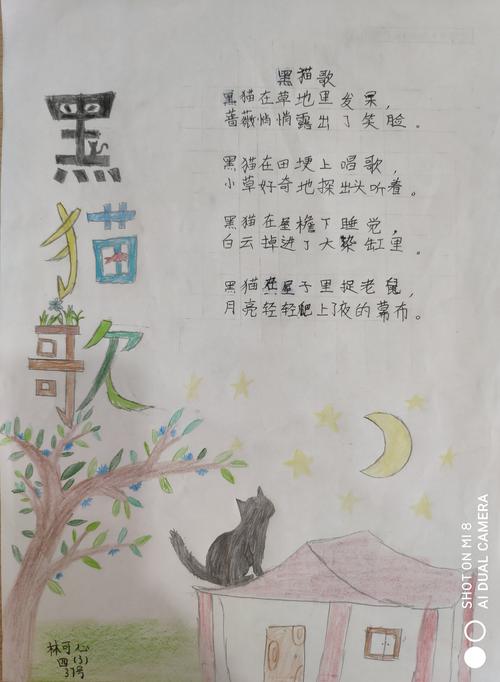 黑猫歌
黑猫歌
黑猫在草地里发呆，
蔷薇悄悄露出了笑脸。
黑猫在田埂上唱歌，
小草好奇地探出头听着。
黑猫在屋檐下睡觉，
白云掉进了大染缸里。
黑猫在屋子里捉老鼠，
月亮轻轻爬上了夜的幕布。
林可心
四（3）
37号
SHOT ON MI 8
AI DUAL CAMERA